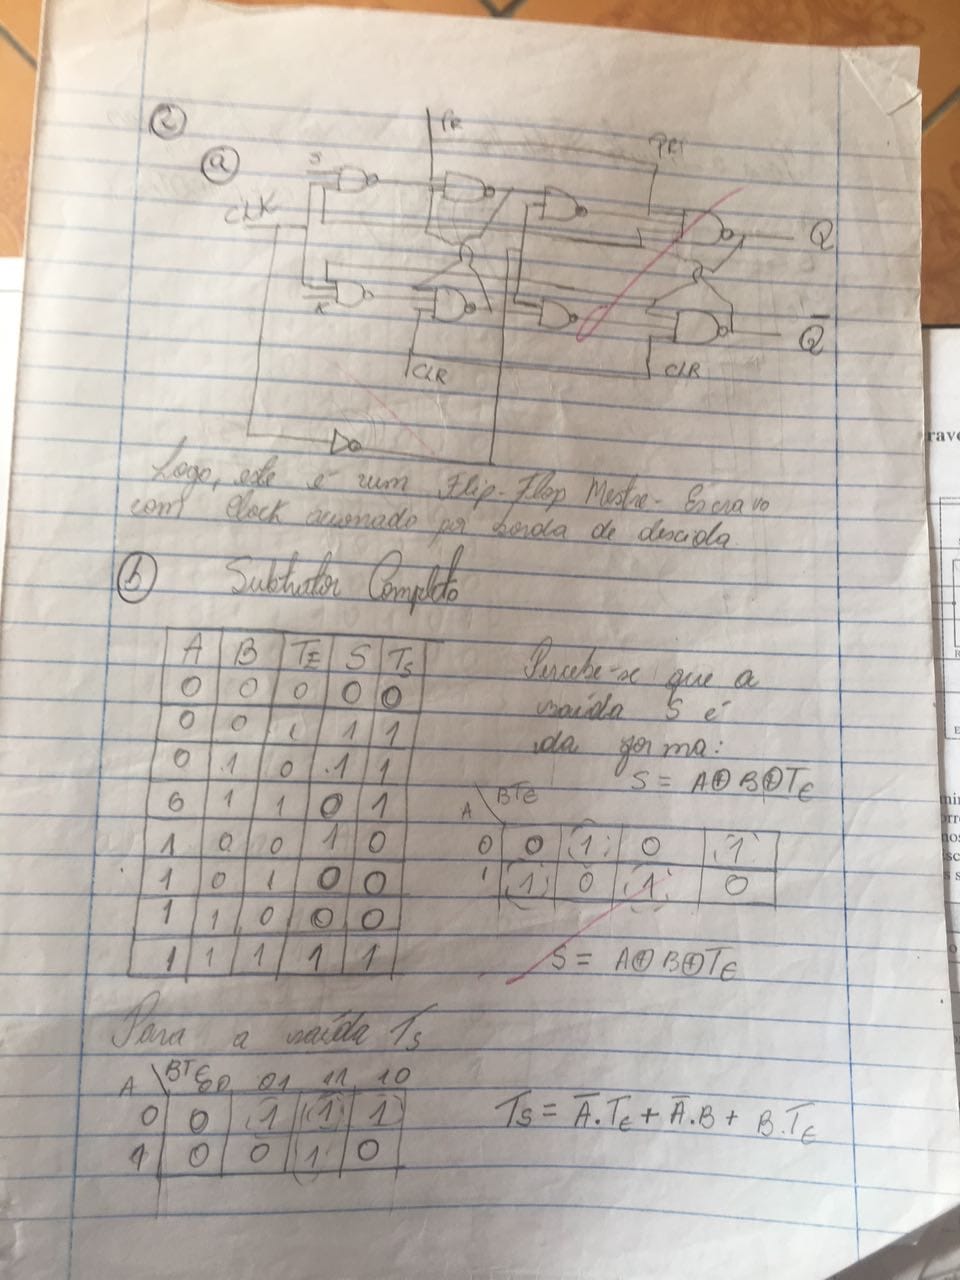 2
a
PR
PR
J
CLK
K
Q
Q̅
CLR
CLR
Logo, este é um Flip-Flop Mestre-Escravo
com clock acionado por borda de descida
b Subtrator Completo
A B TE S TS
0 0 0 0 0
0 0 1 1 1
0 1 0 1 1
0 1 1 0 1
1 0 0 1 0
1 0 1 0 0
1 1 0 0 0
1 1 1 1 1
Percebe-se que a
saída S é
da forma:
S = A⊕B⊕TE
A \ BTE
0 0 1 0 1
1 1 0 1 0
S = A⊕B⊕TE
Para a saída TS
A \ BTE 00 01 11 10
0 0 1 1 1
1 0 0 1 0
TS = A̅.TE + A̅.B + B.TE